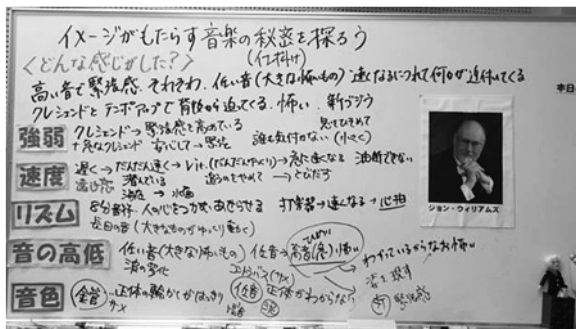 イメージがもたらす音楽の秘密を探ろう
(仕掛け)
<どんな感じがした?>
高い音で緊張感、それわ、低い音(大きな怖いもの)速くなるにつれて何かが近付いてくる
クレシェンドとテンポアップで背後から迫ってくる、怖い、
本日
強弱
クレシェンド→緊張感を高めている
+急なクレシェンド 安心して→恐怖
息をひそめて
誰も気付かない(小さく)
速度
遅く→だんだん速く→rit.(だんだんゆっくり)→急に速くなる 油断できない
遠近感 潜んでいる
海底→水面
追うのをやめて→とびだす
リズム
8分音符、人の心をつかむ、あせらせる 打楽器→速くなる→心拍
長目の音(大きなものがゆっくり動く)
音の高低
低い音(大きな怖いもの)低音→高音(急)怖い
波の変化
コントラバス
わかっているからなお怖い
音色
金管→正体の輪かくがはっきり
低音 正体がわからない
緊張感
ジョン・ウィリアムズ